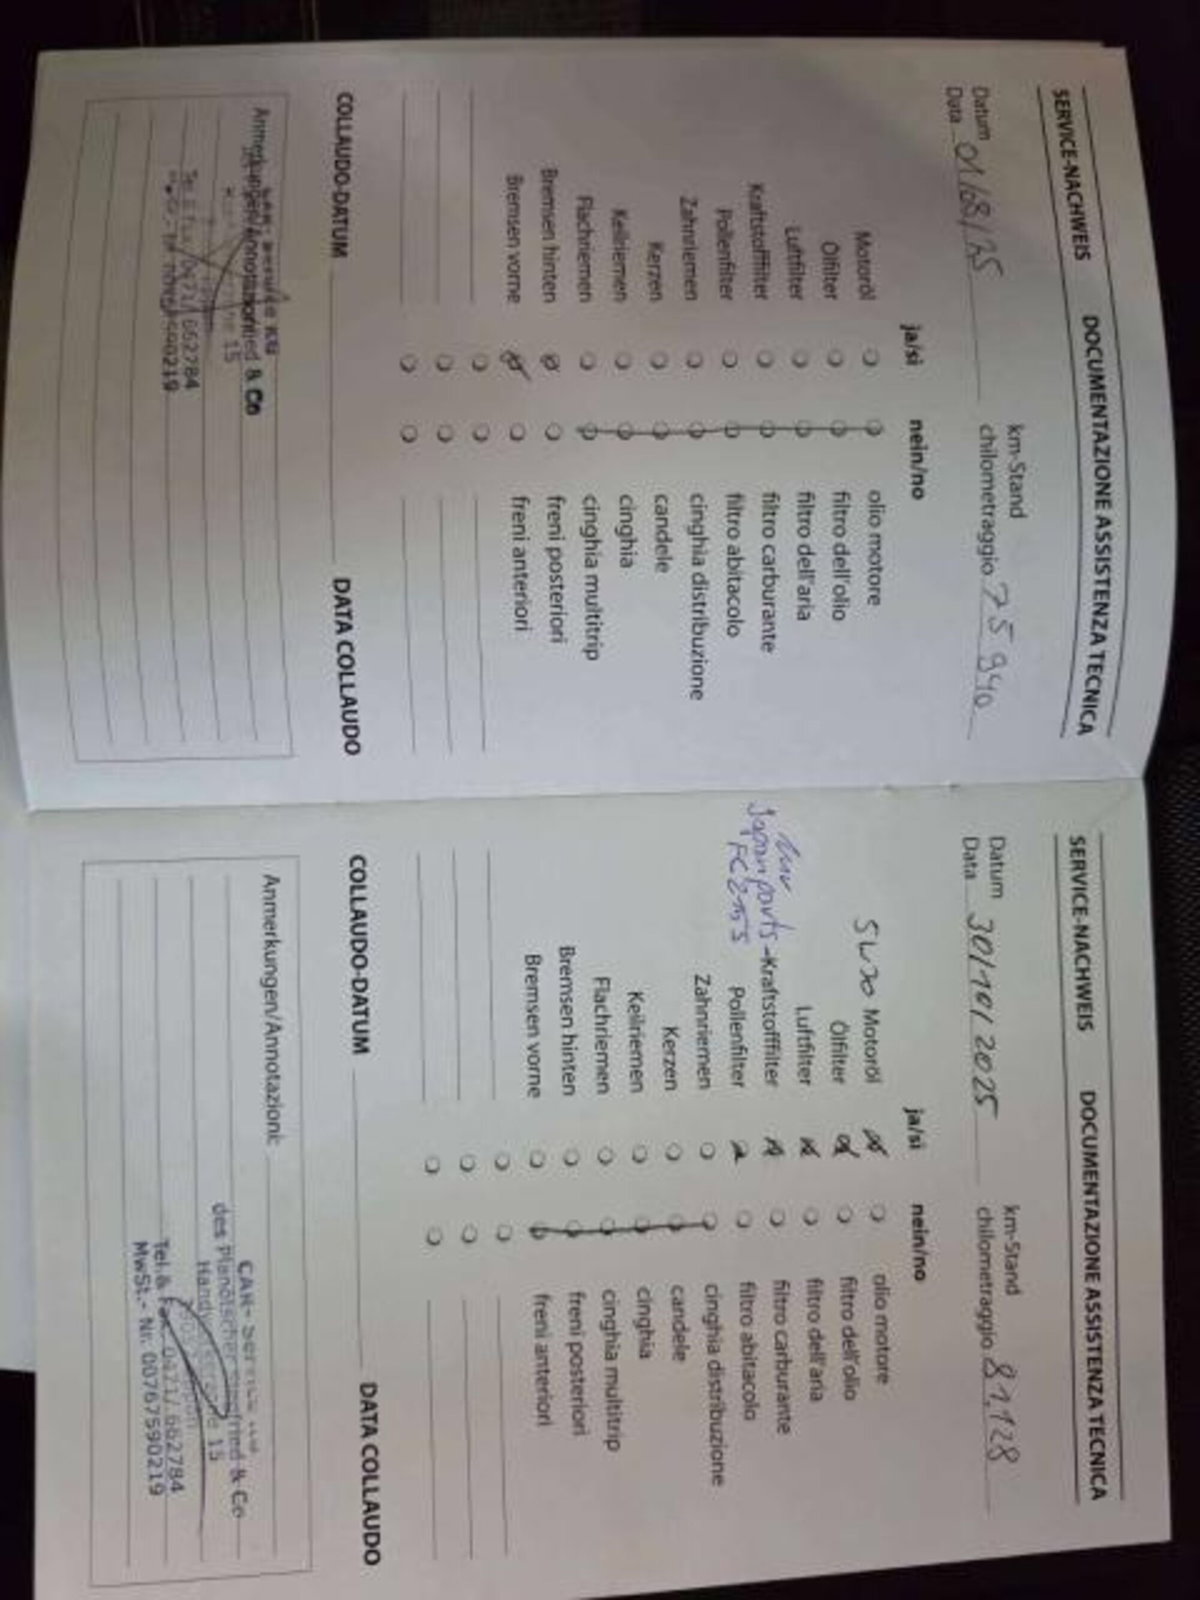 SERVICE-NACHWEIS DOCUMENTAZIONE ASSISTENZA TECNICA
Datum km-Stand
Data 01/08/25 chilometraggio 75 940
ja/sì nein/no
Motoröl olio motore
Ölfilter filtro dell'olio
Luftfilter filtro dell'aria
Kraftstofffilter filtro carburante
Pollenfilter filtro abitacolo
Zahnriemen cinghia distribuzione
Kerzen candele
Keilriemen cinghia
Flachriemen cinghia multitrip
Bremsen hinten freni posteriori
Bremsen vorne freni anteriori
COLLAUDO-DATUM DATA COLLAUDO
Anmerkungen/Annotazioni:
& Co
15
Tel. & Fax 0471/ 662784
00219
SERVICE-NACHWEIS DOCUMENTAZIONE ASSISTENZA TECNICA
Datum km-Stand
Data 30/10/2025 chilometraggio 81.128
ja/sì nein/no
5W30 Motoröl olio motore
Ölfilter filtro dell'olio
Luftfilter filtro dell'aria
Japanparts - Kraftstofffilter filtro carburante
Pollenfilter filtro abitacolo
Zahnriemen cinghia distribuzione
Kerzen candele
Keilriemen cinghia
Flachriemen cinghia multitrip
Bremsen hinten freni posteriori
Bremsen vorne freni anteriori
COLLAUDO-DATUM DATA COLLAUDO
Anmerkungen/Annotazioni:
CAR- Service
des Planötscher Siegfried & Co
15
Tel.& Fax 0471/ 662784
MwSt.- Nr. 00767590219